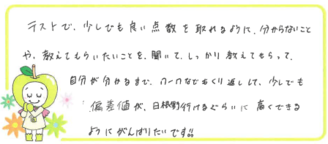 テストで、少しでも良い点数を取れるように、分からないこと
や、教えてもらいたいことを、聞いて、しっかり教えてもらって、
自分が分かるまで、ワークなどをくり返しして、少しでも
偏差値が、目標割行けるぐらいに高くできる
ようにがんばりたいです!!